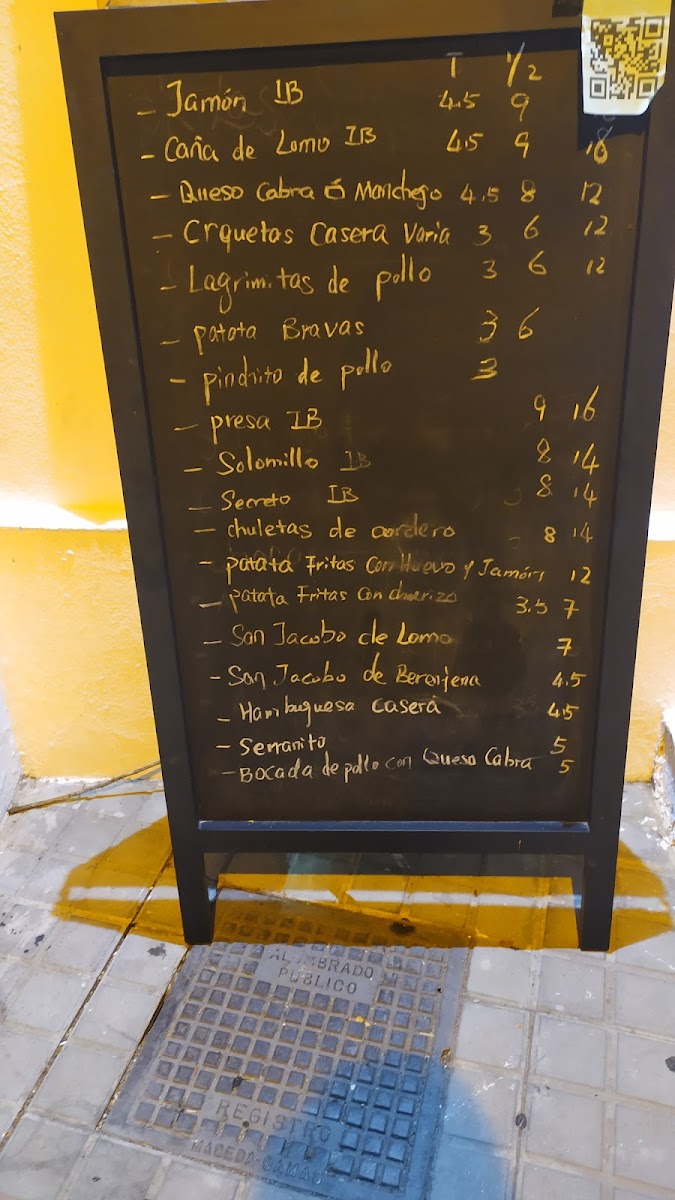 T 1/2
- Jamón IB 4.5 9
- Caña de Lomo IB 4.5 9
- Queso Cabra ó Manchego 4.5 8 12
- Crquetas Casera Varia 3 6 12
- Lagrimitas de pollo 3 6 12
- patata Bravas 3 6
- pinchito de pollo 3
- presa IB 9 16
- Solomillo IB 8 14
- Secreto IB 8 14
- chuletas de cordero - 8 14
- patata Fritas Con Huevo y Jamón 12
- patata Fritas Con chorizo 3.5 7
- San Jacobo de Lomo 7
- San Jacobo de Berenjena 4.5
- Hambuguesa casera 4.5
- Serranito 5
- Bocada de pollo con Queso Cabra 5
ALUMBRADO
PUBLICO
REGISTRO